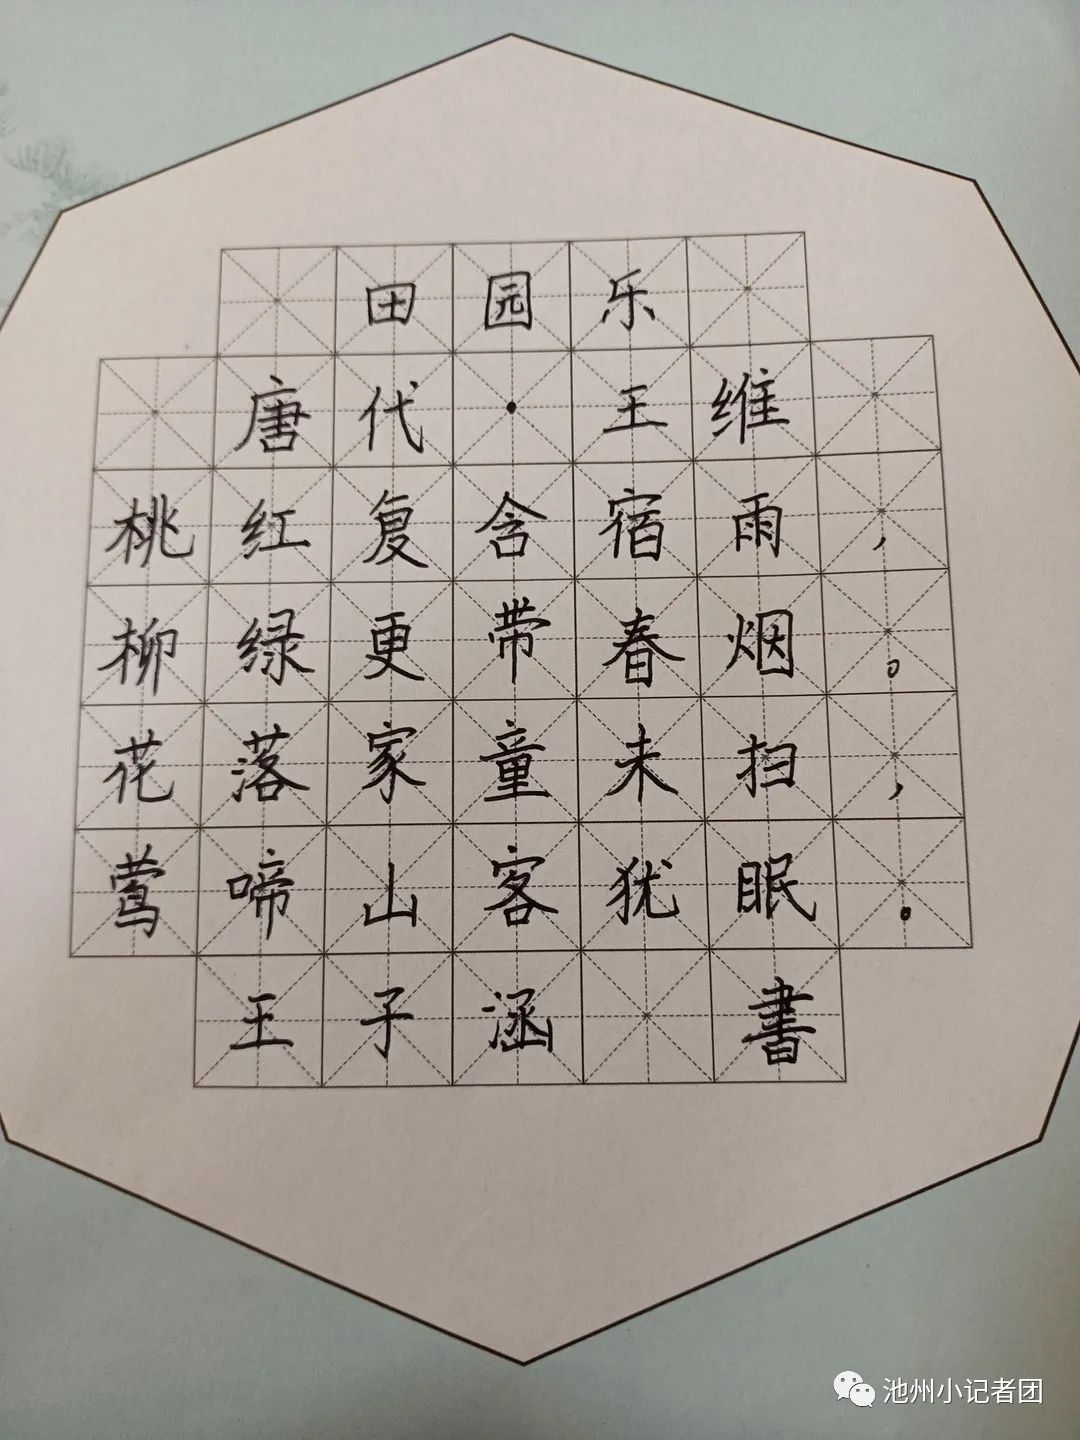 田园乐
唐代·王维
桃红复含宿雨,
柳绿更带春烟。
花落家童未扫,
莺啼山客犹眠。
王子涵 書
池州小记者团